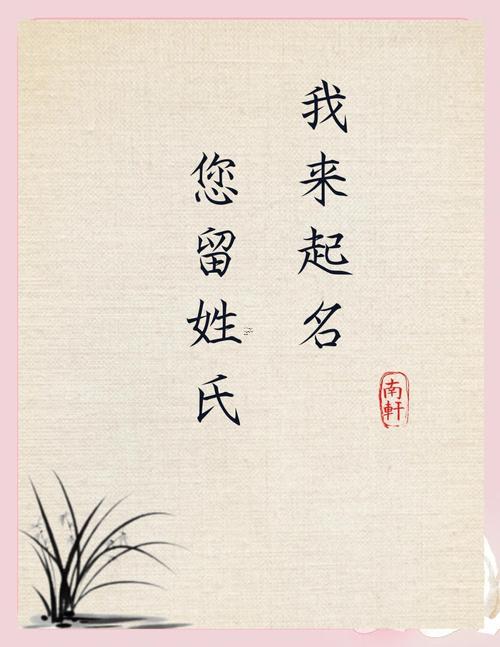 我来起名
您留姓氏
南軒